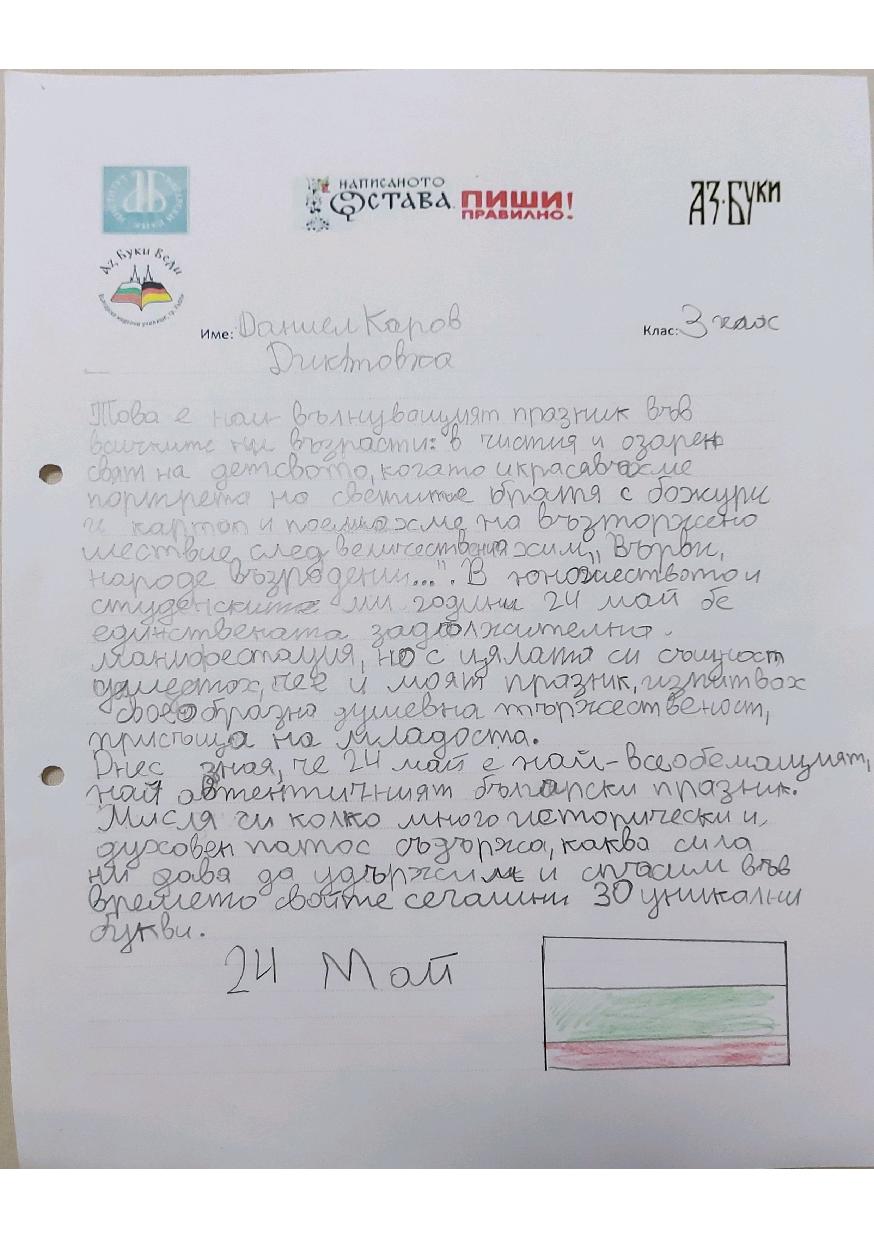 НАПИСАНОТО
ОСТАВА
ПИШИ!
ПРАВИЛНО!
АЗ·БУКИ
Аз Буки Веди
Име: Даниел Каров
Клас: 3 клас
Диктовка
Това е най вълнуващият празник във
всичките ни възрасти: в чистия и озарен
свят на детсвото, когато украсявахме
портрета на светите братя с божури
и картон и поемахме на възторжено
шествие след величествения химн „Върви,
народе възродени...". В юношеството и
студенските ми години 24 май бе
единствената задължителна
манифестация, но с цялата си същност
усещах, че е и моят празник, изпитвах
своеобразна душевна тържественост,
присъща на младоста.
Днес зная, че 24 май е най-всеобемащият,
най автентичният български празник.
Мисля си колко много исторически и
духовен патос съдържа, каква сила
ни дава да удържим и спасим във
времето своите сегашни 30 уникални
букви.
24 Май